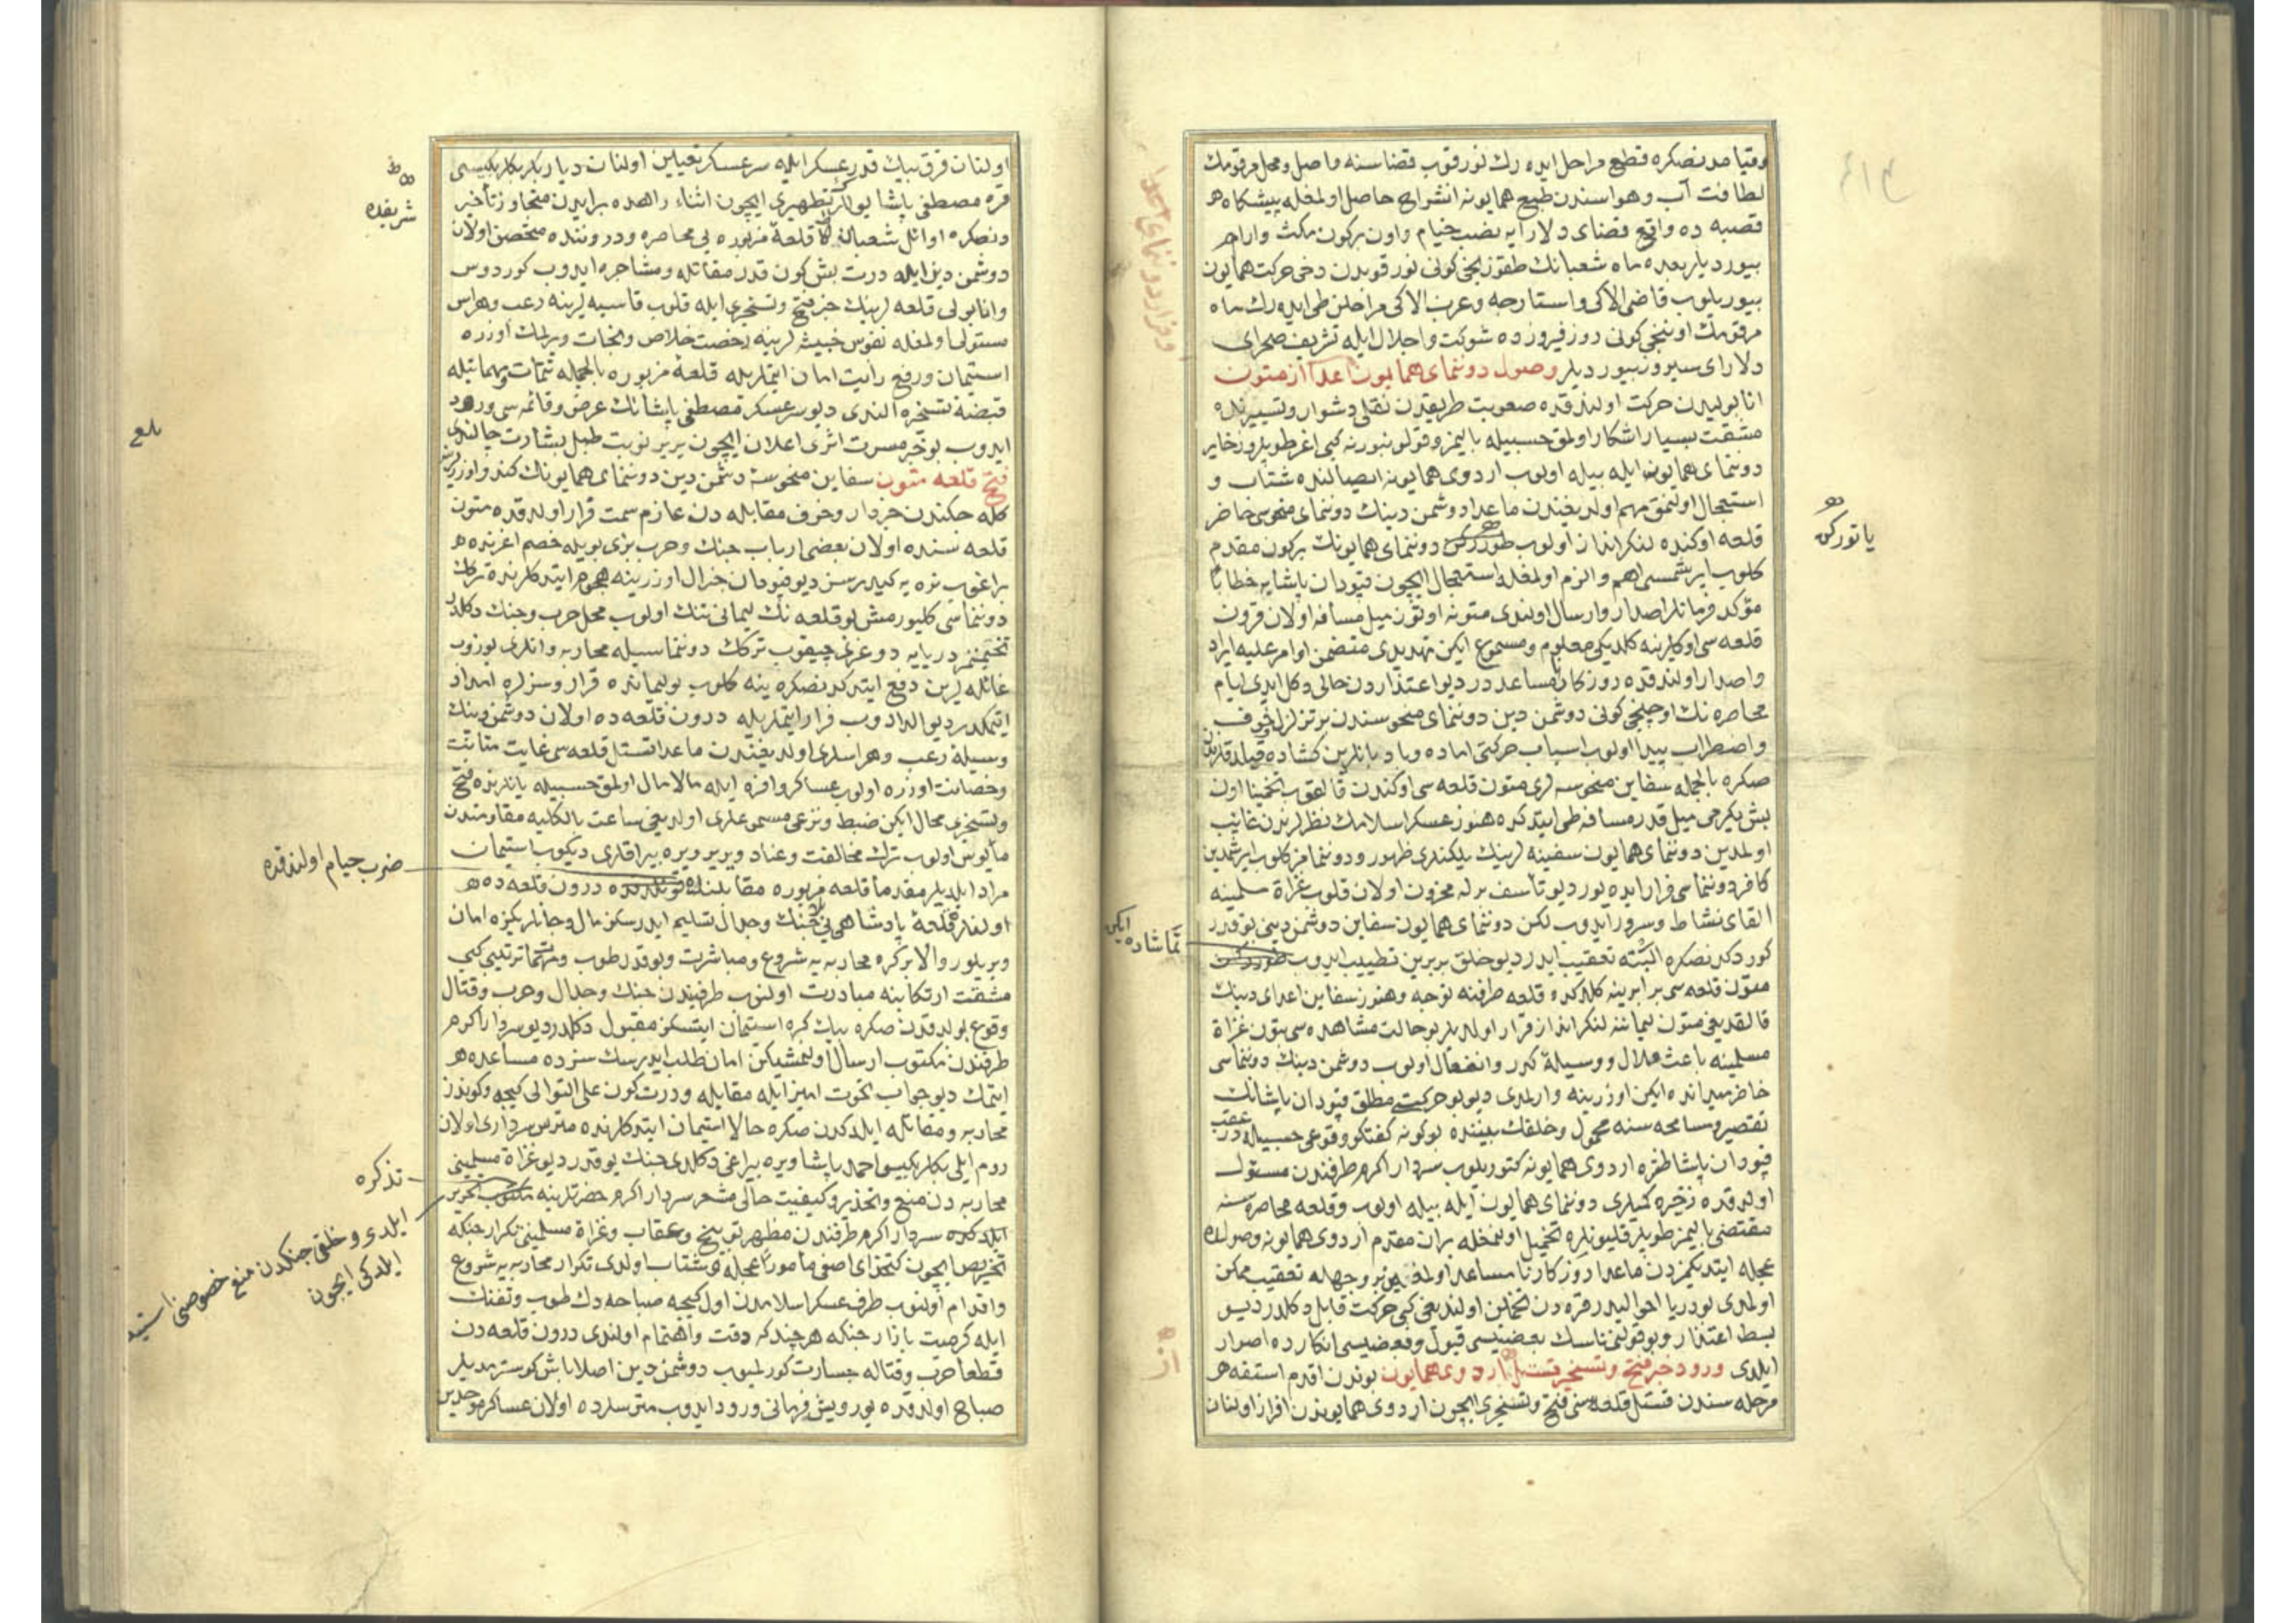 وقیامدنصکره قطع مراحل ایده رك نورقوب قضاسنه واصل ومحل مرقومك
لطافت آب وهواسندن طبع همایونه انشراح حاصل اولمغله پیشکاه
قصبه ده واقع فضای دلارایه نصب خیام واون برکون مکث وارام
بیوردیلر بعده ماه شعبانك طقوزنجی کونی نورقوبدن دخی حرکت همایون
بیوریلوب قاضی الاکی واستارجه وعرب الاکی مراحلن طی ایده رك ماه
مرقومك اوننجی کونی روز فیروزده شوکت واجلال ایله تشریف صحرای
دلارای سیروز بیوردیلر وصول دوننمای همایون اعدا از متون
انابولیدن حرکت اولندقده صعوبت طریقدن نقلی دشوار وتسییرنده
مشقت بسیار اشکار اولمق حسبیله بالیمز وقولونبورنه کبی اغر طوپلر وزخایر
دوننمای همایون ایله بیله اولوب اردوی همایونه ایصالنده شتاب و
استعجال اولنمق مهم اولدیغندن ماعدا دوشمن دینك دوننمای منحوسی حاضر
قلعه اوکنده لنکرانداز اولوب طوررکن دوننمای همایونك برکون مقدم
یاتورکن
کلوب ایرشمسی اهم والزم اولمغله استعجال ایچون قپودان پاشایه خطابا
مؤکد فرمانلر اصدار وارسال اولندی متونه اوتوز میل مسافه اولان قرون
قلعه سی اوکلرینه کلدیکی معلوم ومسموع ایکن تهدیدی متضمن اوامر علیه ایراد
واصدار اولندقده روزکار نامساعددر دیو اعتذاردن خالی دکل ایدی ایام
محاصره نك اوچنجی کونی دوشمن دین دوننمای منحوسندن بر تزلزل خوف
واضطراب پیدا اولوب اسباب حرکتی اماده وبادبانلرین کشاده قیلدقلرندن
صکره بالجمله سفاین منحوسه لری متون قلعه سی اوکندن قالقوب تخمینا اون
بش یکرمی میل قدر مسافه طی ایتدکده هنوز عسکر اسلامك نظرلرندن غایب
اولمدین دوننمای همایون سفینه لرینك یلکنلری ظهور ودوننمامز کلوب ایرشمدین
کافر دوننماسی فرار ایده یور دیو تأسف برله محزون اولان قلوب غزاة مسلمینه
القای نشاط وسرور ایدوب لکن دوننمای همایون سفاین دوشمن دینی بو قدر
کوردکدن صکره البته تعقیب ایدر دیو خلق بربرین تطییب ایدوب طوررکن
تماشاده ایکن
متون قلعه سی برابرینه کلدکده قلعه طرفنه توجه وهنوز سفاین اعدای دینك
قالقدیغی متون لیماننه لنکرانداز قرار اولدیلر بو حالت مشاهده سی بتون غزاة
مسلمینه باعث ملال ووسیله کدر وانفعال اولوب دوشمن دینك دوننماسی
حاضر میدانده ایکن اوزرینه وارلمدی دیو بو حرکت مطلق قپودان پاشانك
تقصیر ومسامحه سنه محمول وخلقك بیننده بوکونه کفتکو وقوعی حسبیله در عقب
قپودان پاشا طقره اردوی همایونه کتوریلوب سردار اکرم طرفندن مسئول
اولدقده زخیره کمیلری دوننمای همایون ایله بیله اولوب وقلعه محاصره سنه
مقتضی بالیمز طوپلر قلیونلره تحمیل اولنمغله بر ان مقدم اردوی همایونه وصولده
عجله ایتدیکمزدن ماعدا روزکار نامساعد اولمغین بر وجهله تعقیب ممکن
اولمدی بو دریا احوالیدر قره دن تخمین اولندیغی کبی حرکت قابل دکلدر دیو
بسط اعتذار وبو قولنی ناسك بعضیسی قبول وبعضیسی انکارده اصرار
ایلدی ورود خبر فتح وتسخیر قستل از اردوی همایون بوندن اقدم استفه
مرحله سندن قستل قلعه سی فتح وتسخیری ایچون اردوی همایوندن افراز اولنان
اولنان قرق بیك قدر عسکر ایله سرعسکر تعیین اولنان دیاربکر بکلربکیسی
قره مصطفی پاشا یوللر تطهیری ایچون اثناء راهده بر ایدن متجاوز تأخیر
شریفده
دنصکره اوائل شعبان قلعه مزبوره یی محاصره ودروننده متحصن اولان
دوشمن دین ایله درت بش کون قدر مقاتله ومشاجره ایدوب کوردوس
وانابولی قلعه لرینك خبر فتح وتسخیری ایله قلوب قاسیه لرینه رعب وهراس
مستولی اولمغله نفوس خبیثه لرینه رخصت خلاص ونجات ویرلمك اوزره
استیمان ورفع رایت امان ایتملریله قلعه مزبوره بالجمله تتمات ومهماتیله
قبضه تسخیره الندی دیو سرعسکر مصطفی پاشانك عرض وقائمه سی ورود
ایدوب بو خبر مسرت اثری اعلان ایچون یر یر نوبت طبل بشارت چالندی
بلغ
فتح قلعه متون سفاین منحوسه دشمن دین دوننمای همایونك کندو اوزرلرینه
کله جکندن خبردار وخوف مقابله دن عازم سمت قرار اولدقده متون
قلعه سنده اولان بعضی ارباب جنك وحرب بزی بویله خصم اغزنده
براغوب نره یه کیدرسن دیو قپودان جنرال اوزرینه هجوم ایتدکلرنده ترك
دوننماسی کلیورمش بو قلعه نك لیمانی تنك اولوب محل حرب وجنك دکلدر
تخمینمز دریایه دوغری چیقوب ترك دوننماسیله محاربه وانلری بوزوب
غائله لرین دفع ایتدکدنصکره ینه کلوب بو لیمانده قرار وسزلره امداد
ایتمکدر دیو الدادوب فرار ایتملریله درون قلعه ده اولان دوشمن دینك
وسیله رعب وهراسلری اولدیغندن ماعدا قستل قلعه سی غایت متانت
وحصانت اوزره اولوب عساکر وافره ایله مالامال اولمق حسبیله یانلرنده فتح
وتسخیری محال ایکن ضبط ونزعی مسموعلری اولدیغی ساعت بالکلیه مقاومتدن
مأیوس اولوب ترك مخالفت وعناد ویر یر ویره بیراقلری دیکوب استیمان
مراد ایلدیلر مقدما قلعه مزبوره مقابلنده
ضرب خیام اولندقده
درون قلعه ده
اولنلر قلعه پادشاهی یی بلا جنك وجدال تسلیم ایدرسکز مال وجانلریکزه امان
ویریلور والا برکره محاربه یه شروع ومباشرت وبو قدر طوب ومهمات ترتیبی کبی
مشقت ارتکابنه مبادرت اولنوب طرفیندن جنك وجدال وحرب وقتال
وقوع بولدقدن صکره بیك کره استیمان ایتسکز مقبول دکلدر دیو سردار اکرم
طرفندن مکتوب ارسال اولنمشیکن امان طلب ایدرسك سزده مساعده
ایتمك دیو جواب نخوت امیز ایله مقابله ودرت کون علی التوالی کیجه وکوندز
محاربه ومقاتله ایلدکدن صکره حالا استیمان ایتدکلرنده متریس سرداری اولان
روم ایلی بکلربکیسی احمد پاشا ویره بیراغی دکلدی جنك یوقدر دیو غزاة مسلمینی
محاربه دن منع وتحذیر وکیفیت حالی مشعر سردار اکرم حضرتلرینه مکتوب تحریر
تذکره
ایلدی وخلقی جنکدن منع خصوصنی
ایلدکی ایچون
ایلدکده سردار اکرم طرفندن مظهر توبیخ وعقاب وغزاة مسلمینی تکرار جنکه
تحریص ایچون کتخدای اصفی مأمورا عجله وشتاب اولدی تکرار محاربه یه شروع
واقدام اولنوب طرف عسکر اسلامدن اول کیجه صباحه دك طوب وتفنك
ایله کرمیت بازار جنکه هرچندکه دقت واهتمام اولندی درون قلعه دن
قطعا حرب وقتاله جسارت کورلمیوب دوشمن دین اصلا باش کوسترمدیلر
صباح اولدقده یورویش فرمانی ورود ایدوب متریسلرده اولان عساکر موحدین